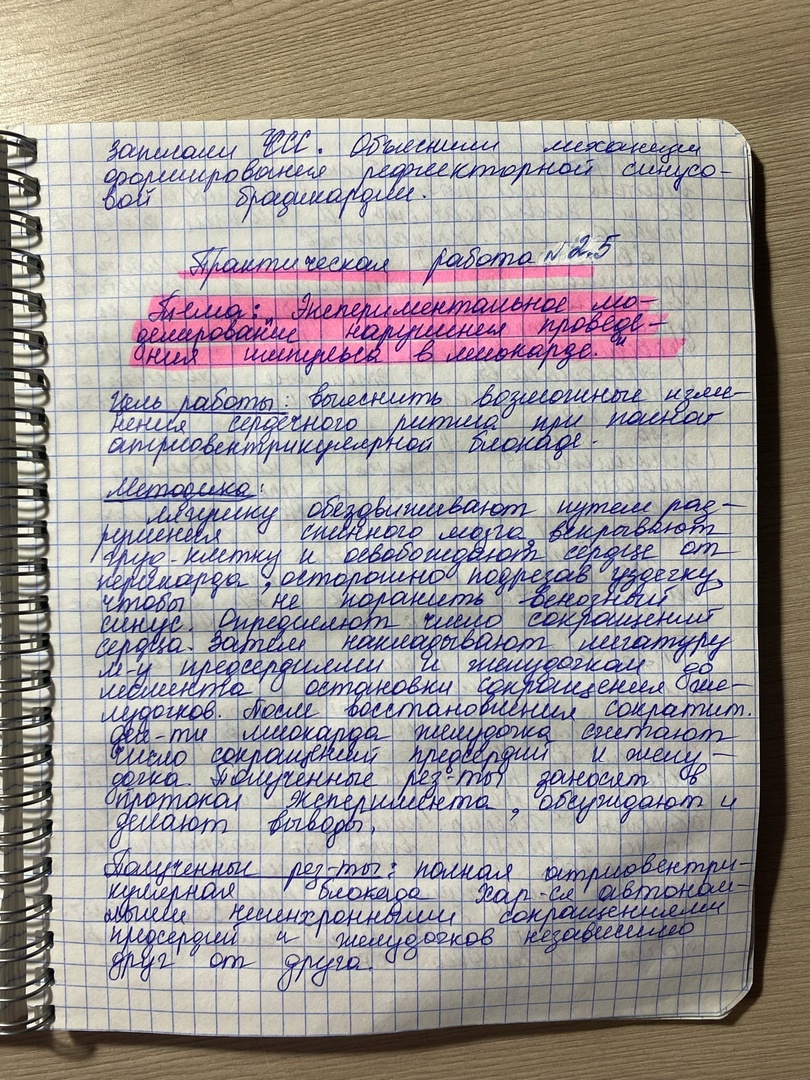 записали ЧСС. Объяснили механизм
формирования рефлекторной синусо-
вой брадикардии.
Практическая работа №2.5
Тема: "Экспериментальное мо-
делирование нарушения проведе-
ния импульса в миокарде."
Цель работы: выяснить возможные изме-
нения сердечного ритма при полной
атриовентрикулярной блокаде.
Методика:
Лягушку обездвиживают путем раз-
рушения спинного мозга, вскрывают
груд. клетку и освобождают сердце от
перикарда, осторожно подрезав уздечку,
чтобы не поранить венозный
синус. Определяют число сокращений
сердца. Затем накладывают лигатуру
м-у предсердиями и желудочком до
момента остановки сокращения же-
лудочков. После восстановления сократит.
деят-ти миокарда желудочка считают
число сокращений предсердий и желу-
дочка. Полученные рез-ты заносят в
протокол эксперимента, обсуждают и
делают выводы.
Полученные рез-ты: полная атриовентри-
кулярная блокада хар-ся автоном-
ными несинхронными сокращениями
предсердий и желудочков независимо
друг от друга.